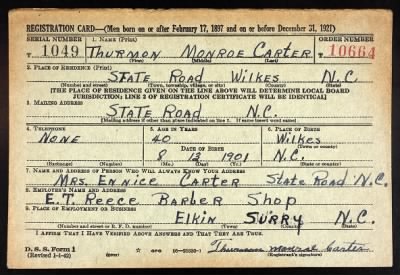 REGISTRATION CARD—(Men born on or after February 17, 1897 and on or before December 31, 1921)
SERIAL NUMBER 1. NAME (Print) ORDER NUMBER
T 1049 THURMON MONROE CARTER T 10664
(First) (Middle) (Last)
2. PLACE OF RESIDENCE (Print)
STATE ROAD WILKES N.C.
(Number and street) (Town, township, village, or city) (County) (State)
[THE PLACE OF RESIDENCE GIVEN ON THE LINE ABOVE WILL DETERMINE LOCAL BOARD
JURISDICTION; LINE 2 OF REGISTRATION CERTIFICATE WILL BE IDENTICAL]
3. MAILING ADDRESS
STATE ROAD N.C.
[Mailing address if other than place indicated on line 2. If same insert word same]
4. TELEPHONE 5. AGE IN YEARS 6. PLACE OF BIRTH
NONE 40 WILKES
DATE OF BIRTH (Town or county)
8 12 1901 N.C.
(Exchange) (Number) (Mo.) (Day) (Yr.) (State or country)
7. NAME AND ADDRESS OF PERSON WHO WILL ALWAYS KNOW YOUR ADDRESS
MRS. ENNICE CARTER STATE ROAD N.C.
8. EMPLOYER'S NAME AND ADDRESS
E.T. REECE BARBER SHOP
9. PLACE OF EMPLOYMENT OR BUSINESS
ELKIN SURRY N.C.
(Number and street or R. F. D. number) (Town) (County) (State)
I AFFIRM THAT I HAVE VERIFIED ABOVE ANSWERS AND THAT THEY ARE TRUE.
D. S. S. Form 1
(Revised 1-1-42) (over)
Thurmon Monroe Carter
(Registrant's signature)